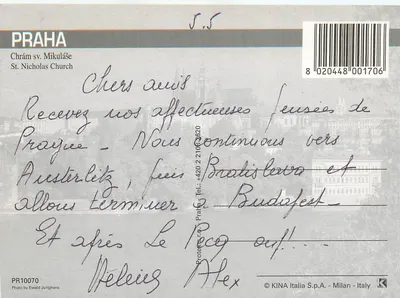 5.5
PRAHA
Chrám sv. Mikuláše
St. Nicholas Church
8 020448 001706
Chers amis
Recevez nos affectueuses pensées de
Prague - Nous continuons vers
Austerlitz, puis Bratislava et
allons terminer à Budapest -
Et après Le Pecq ouf!...
Alex
PR10070
Photo by Ewald Junghans
© KINA Italia S.p.A. - Milan - Italy
K